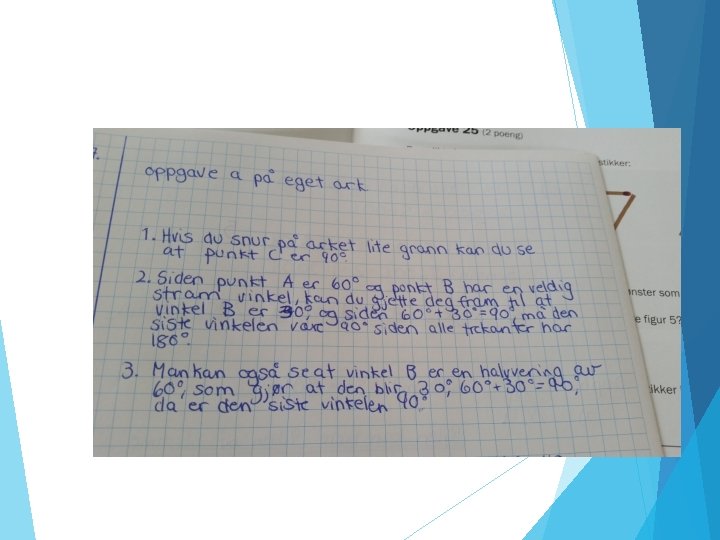 Oppgave 25 (2 poeng)
stikker:
7.
oppgave a på eget ark
1. Hvis du snur på arket lite grann kan du se
at punkt C er 90°.
2. Siden punkt A er 60° og ponkt B har en veldig
stram vinkel, kan du gjette deg fram til at
vinkel B er 30°, og siden 60° + 30° = 90°, må den
siste vinkelen være 90° siden alle trekanter har
180°.
3. Man kan også se at vinkel B er en halvvering av
60°, som gjør at den blir 30°, 60° + 30° = 90°,
da er den siste vinkelen 90°.
nster som
e figur 5?
ikker